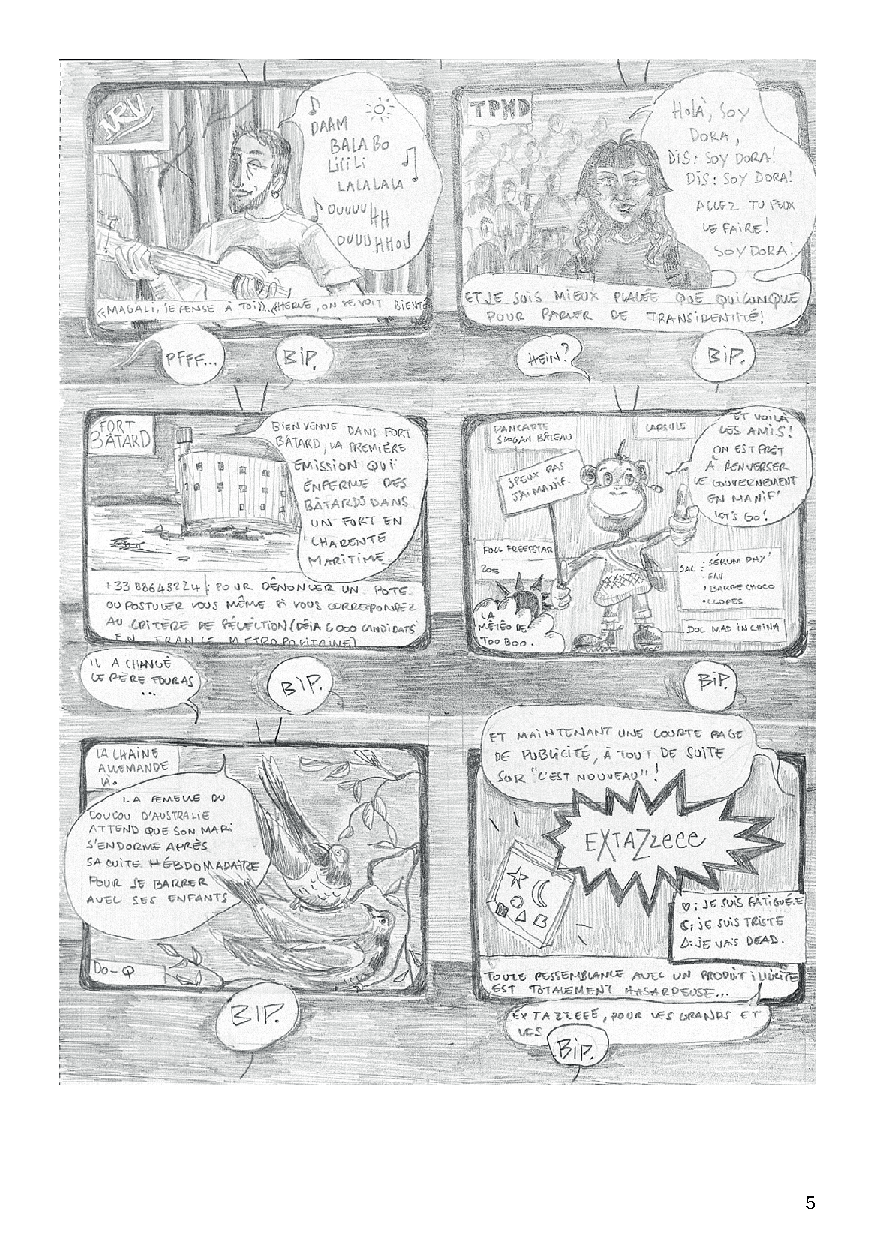 NRV
DAAM
BALA BO
LILILI
LALALALA
OUUUU HH
OUUUHHOU
MAGALI, JE PENSE À TOI
HERVÉ, ON SE VOIT BIENT
PFFF...
BIP.
TPND
HOLÀ, SOY
DORA,
DIS: SOY DORA!
DIS: SOY DORA!
ALLEZ TU PEUX
LE FAIRE!
SOY DORA!
ET JE SUIS MIEUX PLACÉE QUE QUICONQUE
POUR PARLER DE TRANSIDENTITÉ!
HEIN?
BIP.
FORT
BÂTARD
BIENVENUE DANS FORT
BÂTARD, LA PREMIÈRE
ÉMISSION QUI
ENFERME DES
BÂTARDS DANS
UN FORT EN
CHARENTE
MARITIME.
: POUR DÉNONCER UN POTE
OU POSTULER VOUS MÊME SI VOUS CORRESPONDEZ
AU CRITÈRE DE SÉLECTION (DÉJÀ 6000 CANDIDATS
EN FRANCE MÉTROPOLITAINE)
IL A CHANGÉ
LE PÈRE FOURAS
...
BIP.
PANCARTE
SLOGAN BATEAU
CAPSULE
ET VOILÀ
LES AMIS!
ON EST PRÊT
À RENVERSER
LE GOUVERNEMENT
EN MANIF'
LET'S GO!
J'PEUX PAS
J'AI MANIF.
SAC : SÉRUM PHY'
• EAU
• BARRE CHOCO
• CLOPES
LA
MÉTÉO DE
TOO BOO.
BIP.
LA CHAÎNE
ALLEMANDE
LÀ.
LA FEMELLE DU
COUCOU D'AUSTRALIE
ATTEND QUE SON MARI
S'ENDORME APRÈS
SA CUITE HEBDOMADAIRE
POUR SE BARRER
AVEC SES ENFANTS
DO-Q
BIP.
ET MAINTENANT UNE COURTE PAGE
DE PUBLICITÉ, À TOUT DE SUITE
SUR "C'EST NOUVEAU"!
EXTAZzece
: JE SUIS FATIGUÉ.E
: JE SUIS TRISTE
: JE VAIS DEAD.
TOUTE RESSEMBLANCE AVEC UN PRODUIT ILLICITE
EST TOTALEMENT HASARDEUSE...
EXTAZZEEE, POUR LES GRANDS ET
LES
BIP.
5